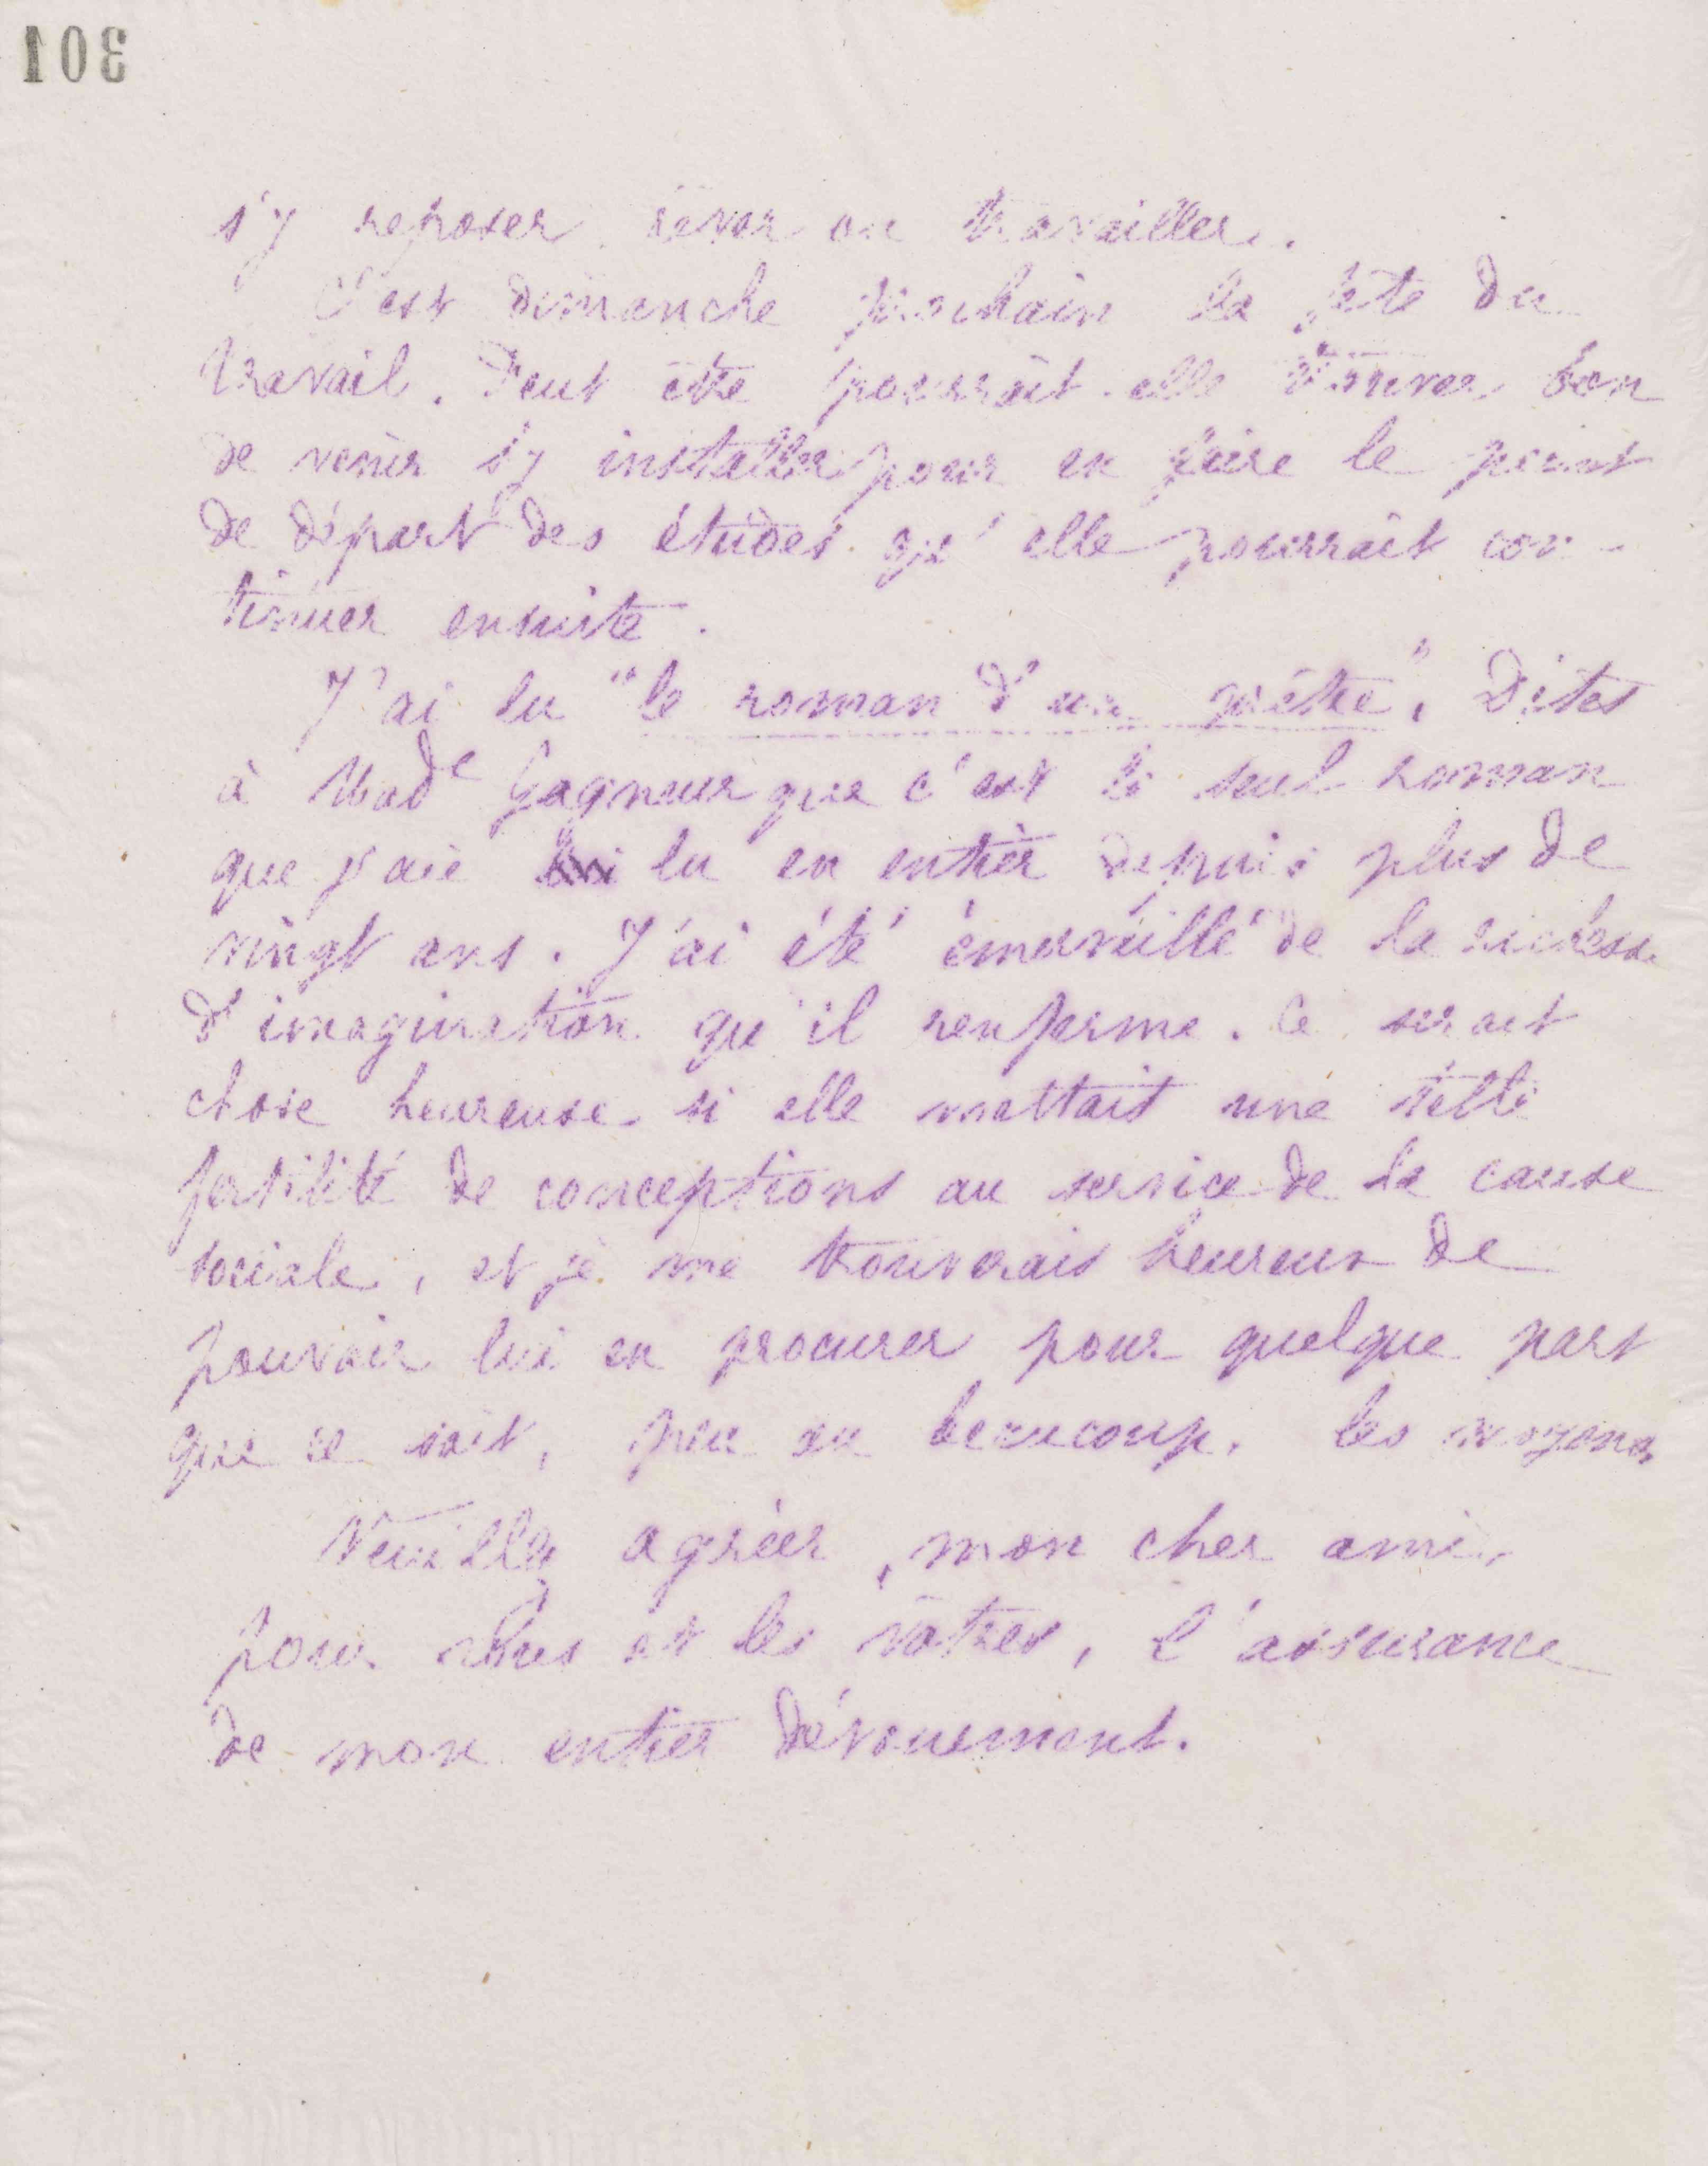 301
s'y reposer rêver ou travailler.
C'est dimanche prochain la fête du
travail. Peut être pourrait-elle trouver bon
de venir s'y installer pour en faire le point
de départ des études qu'elle pourrait con-
tinuer ensuite.
J'ai lu "le roman d'un prêtre". Dites
à Madᵉ Gagneur que c'est le seul roman
que j'aie lu en entier depuis plus de
vingt ans. J'ai été émerveillé de la richesse
d'imagination qu'il renferme. Ce serait
chose heureuse si elle mettait une telle
fertilité de conceptions au service de la cause
sociale, et je me trouverais heureux de
pouvoir lui en procurer pour quelque part
que ce soit, peu ou beaucoup, les moyens.
Veuillez agréer, mon cher ami,
pour vous et les vôtres, l'assurance
de mon entier dévouement.